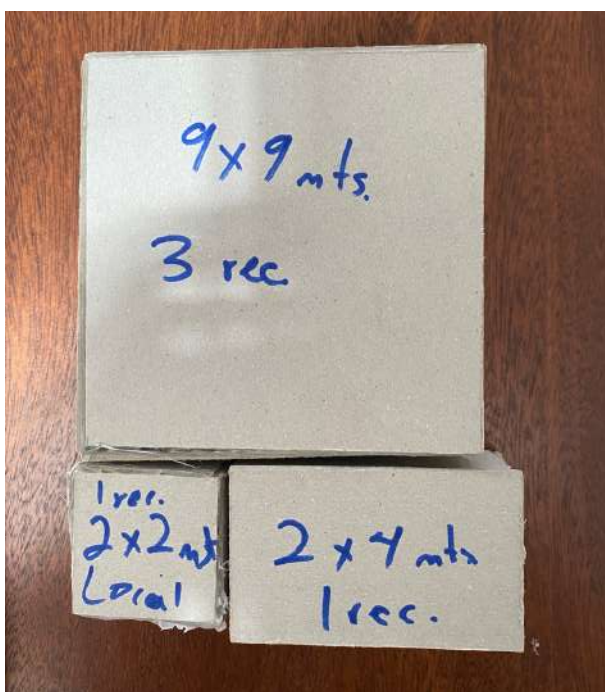 9x9 mts.
3 rec.
1 rec.
2x2 mt
Local
2 x 4 mts
1 rec.